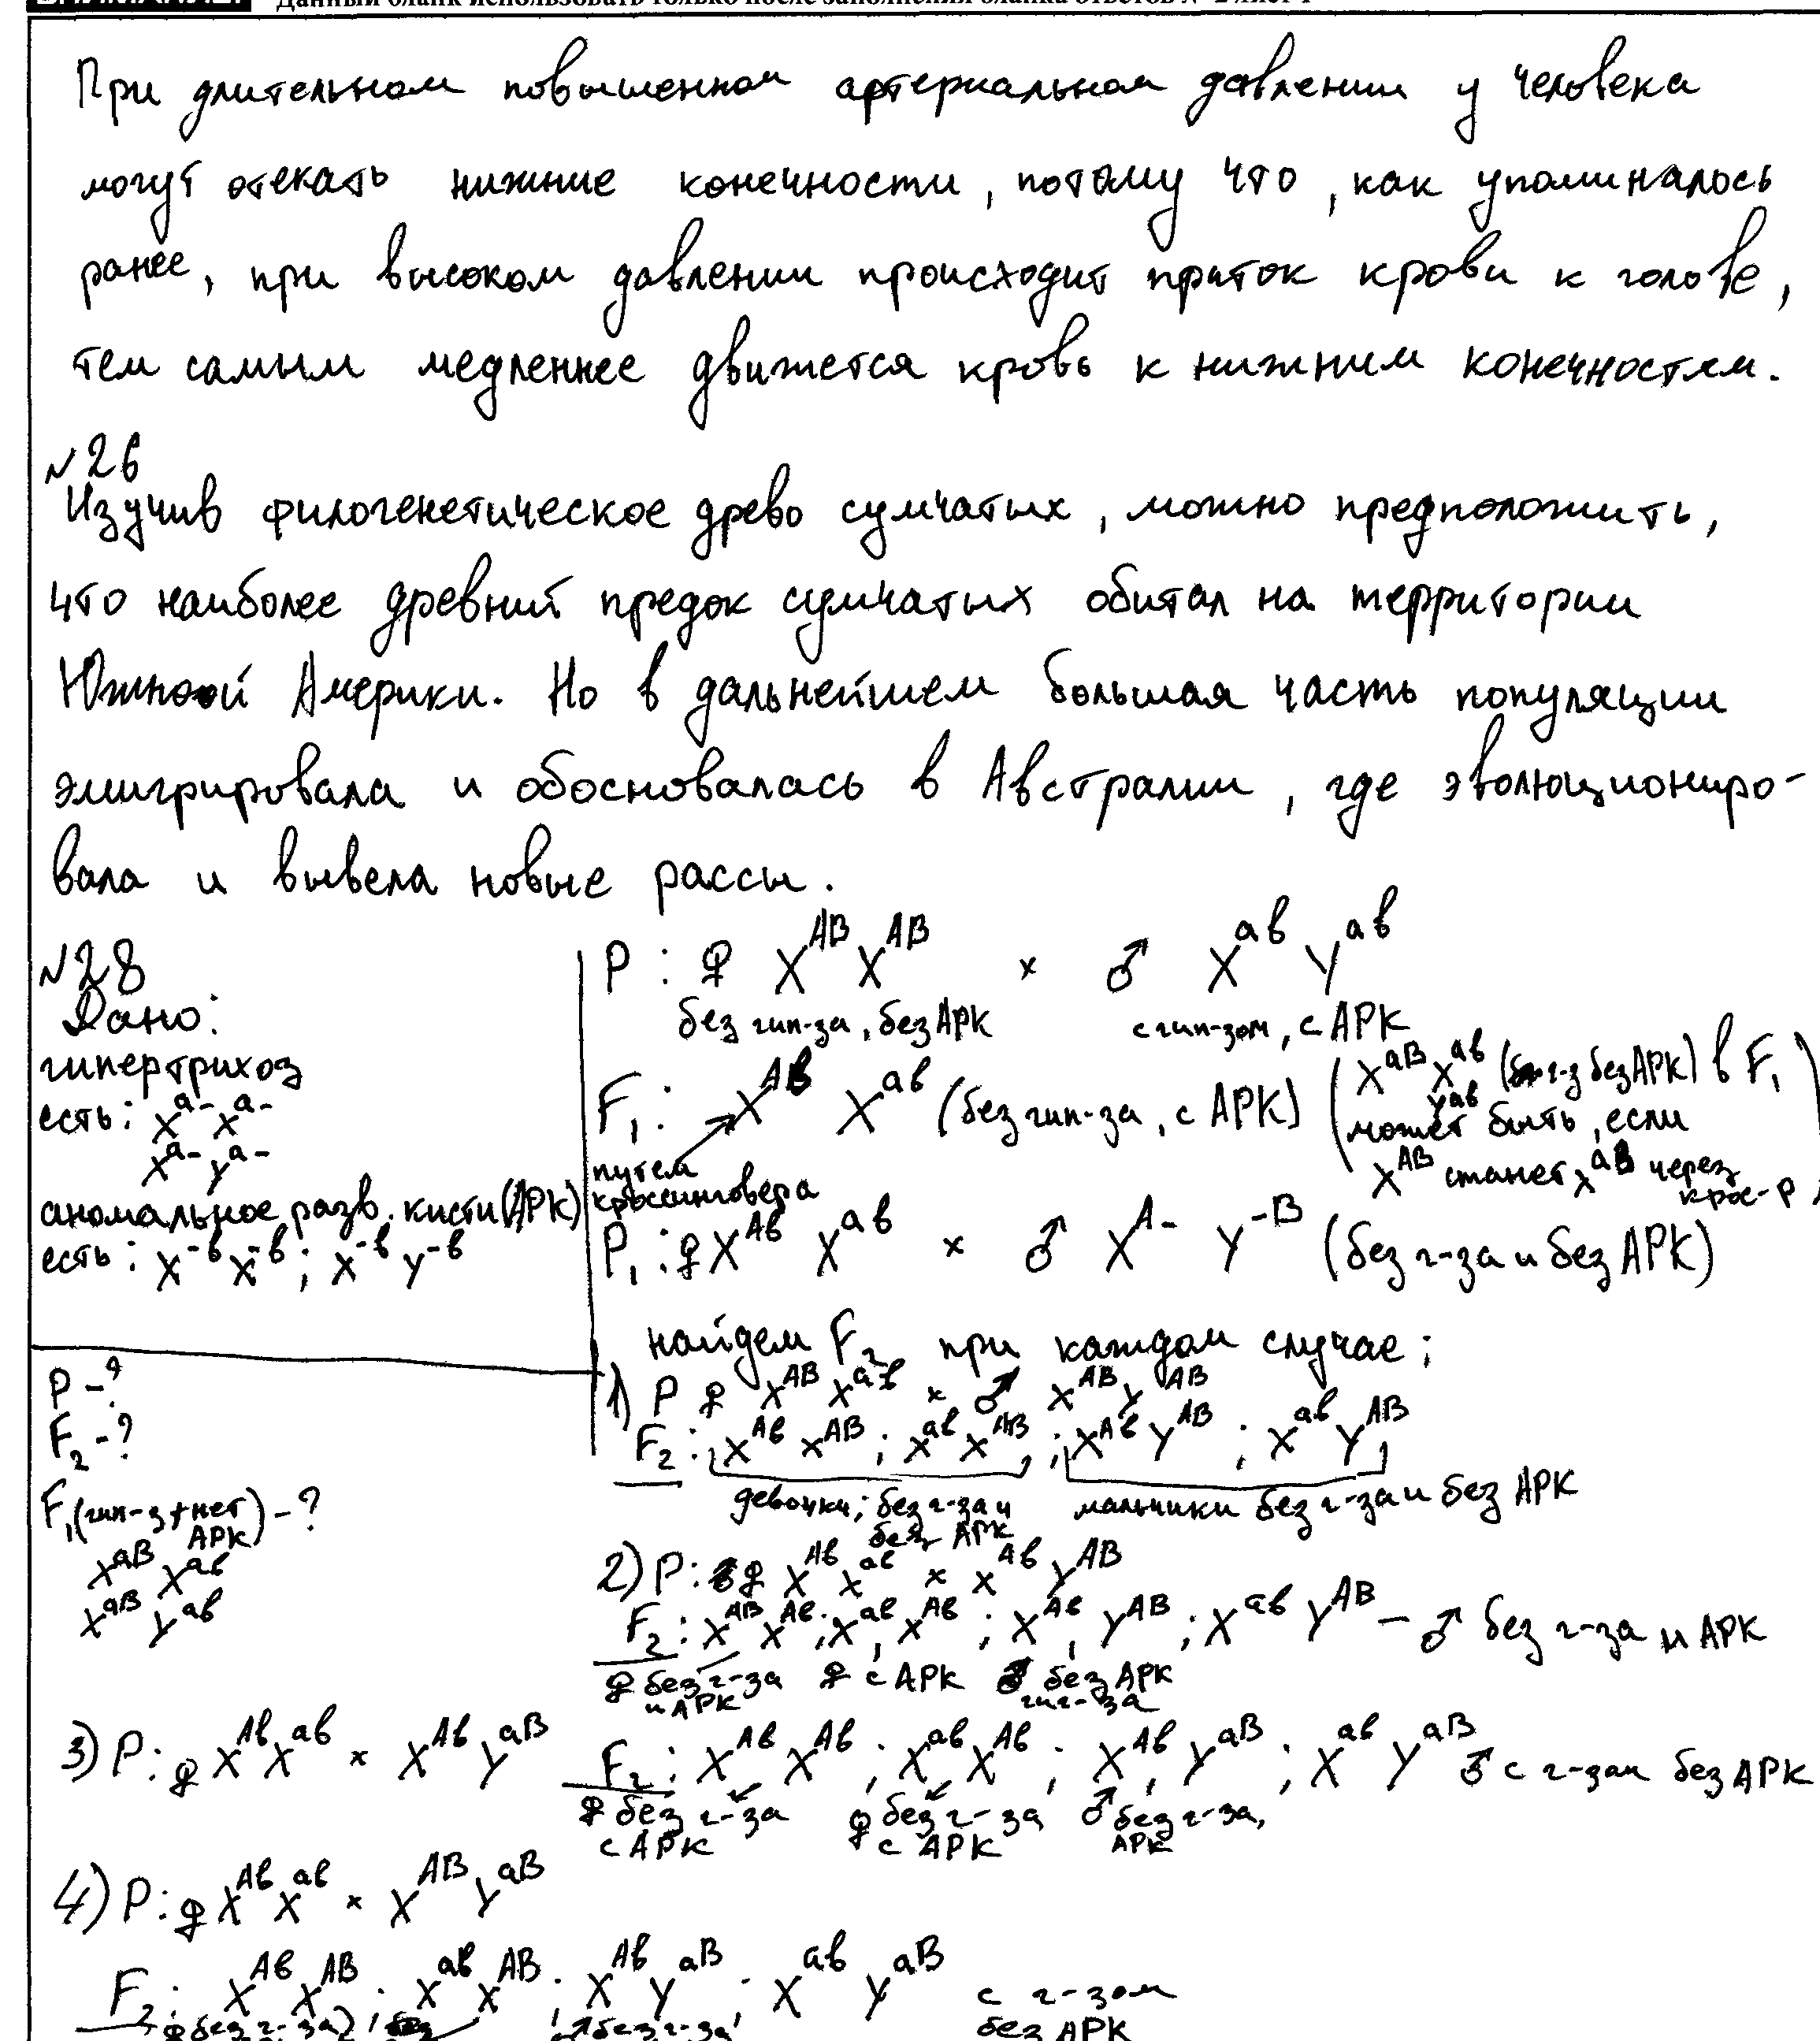 Данный бланк использовать только после заполнения бланка ответов № 2 лист 1
При длительном повышенном артериальном давлении у человека
могут отекать нижние конечности, потому что, как упоминалось
ранее, при высоком давлении происходит приток крови к голове,
тем самым медленнее движется кровь к нижним конечностям.
№26
Изучив филогенетическое древо сумчатых, можно предположить,
что наиболее древний предок сумчатых обитал на территории
Южной Америки. Но в дальнейшем большая часть популяции
эмигрировала и обосновалась в Австралии, где эволюциониро-
вала и вывела новые рассы.
№28
Дано:
гипертрихоз
есть: X^а- X^а-
X^а- Y^а-
аномальное разв. кисти (АРК)
есть: X^-в X^-в; X^-в Y^-в
P - ?
F₂ - ?
F₁ (гип-з + нет АРК) - ?
X^аВ X^ав
X^аВ Y^ав
P: ♀ X^АВ X^АВ × ♂ X^ав Y^ав
без гип-за, без АРК с гип-зом, с АРК
F₁: X^Ав X^ав (без гип-за, с АРК)
путем кроссинговера
(X^аВ X^ав Y^ав г-з без АРК) в F₁
может быть, если
X^АВ станет X^аВ через
крос-р)
P₁: ♀ X^Ав X^ав × ♂ X^А- Y^-В (без г-за и без АРК)
найдем F₂ при каждом случае;
1) P ♀ X^АВ X^ав × ♂ X^АВ Y^АВ
F₂: X^Ав X^АВ; X^ав X^АВ; X^Ав Y^АВ; X^ав Y^АВ
девочки; без г-за и без АРК мальчики без г-за и без АРК
2) P: ♀ X^Ав X^ав × X^Ав Y^АВ
F₂: X^АВ X^Ав; X^ав X^Ав; X^Ав Y^АВ; X^ав Y^АВ - ♂ без г-за и АРК
♀ без г-за и АРК ♀ с АРК ♂ без АРК гиг-за
3) P: ♀ X^Ав X^ав × X^Ав Y^аВ F₂: X^Ав X^Ав; X^ав X^Ав; X^Ав Y^аВ; X^ав Y^аВ ♂ с г-зом без АРК
♀ без г-за с АРК ♀ без г-за с АРК ♂ без г-за, АРК
4) P: ♀ X^Ав X^ав × X^АВ Y^аВ
F₂: X^Ав X^АВ; X^ав X^АВ; X^Ав Y^аВ; X^ав Y^аВ с г-зом без АРК
♀ без г-за ♂ без г-за